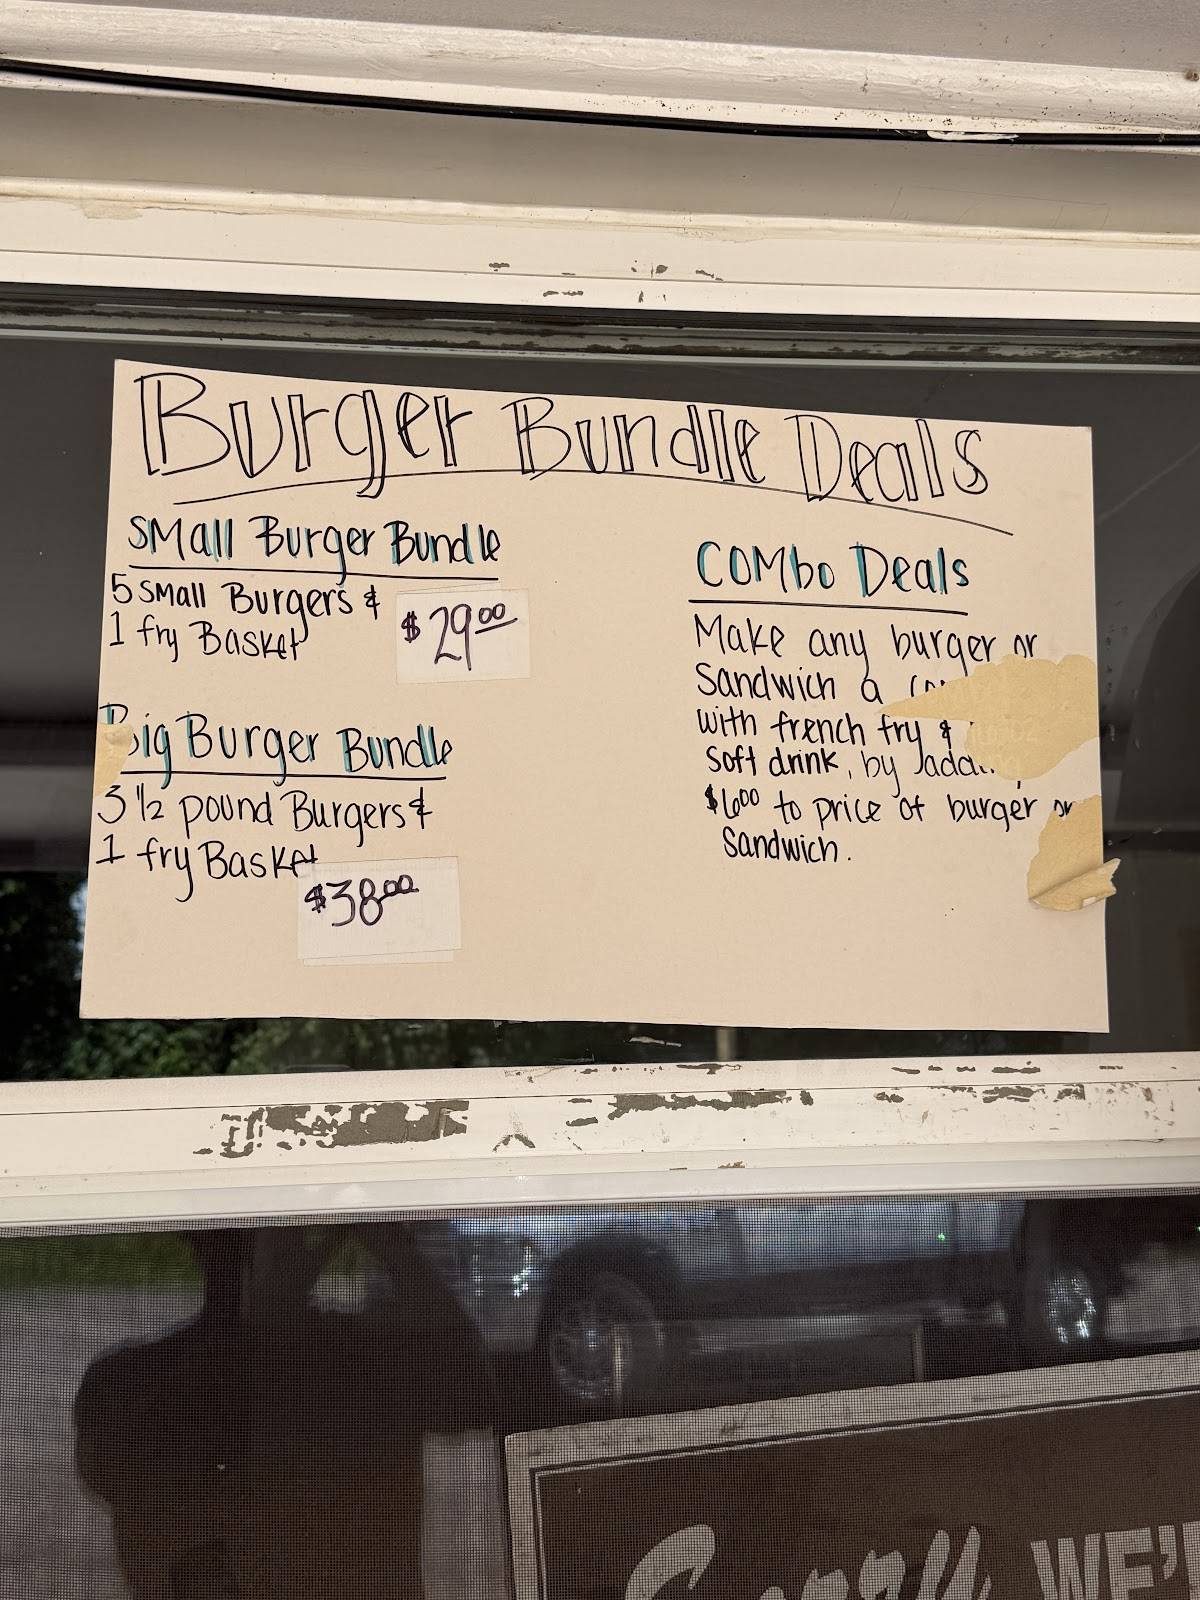 Burger Bundle Deals
Small Burger Bundle
5 small Burgers &
1 fry Basket
$29.00
Big Burger Bundle
3 1/2 pound Burgers &
1 fry Basket
$38.00
Combo Deals
Make any burger or
Sandwich a
with french fry &
soft drink, by adding
$6.00 to price of burger or
Sandwich.
Sorry WE'